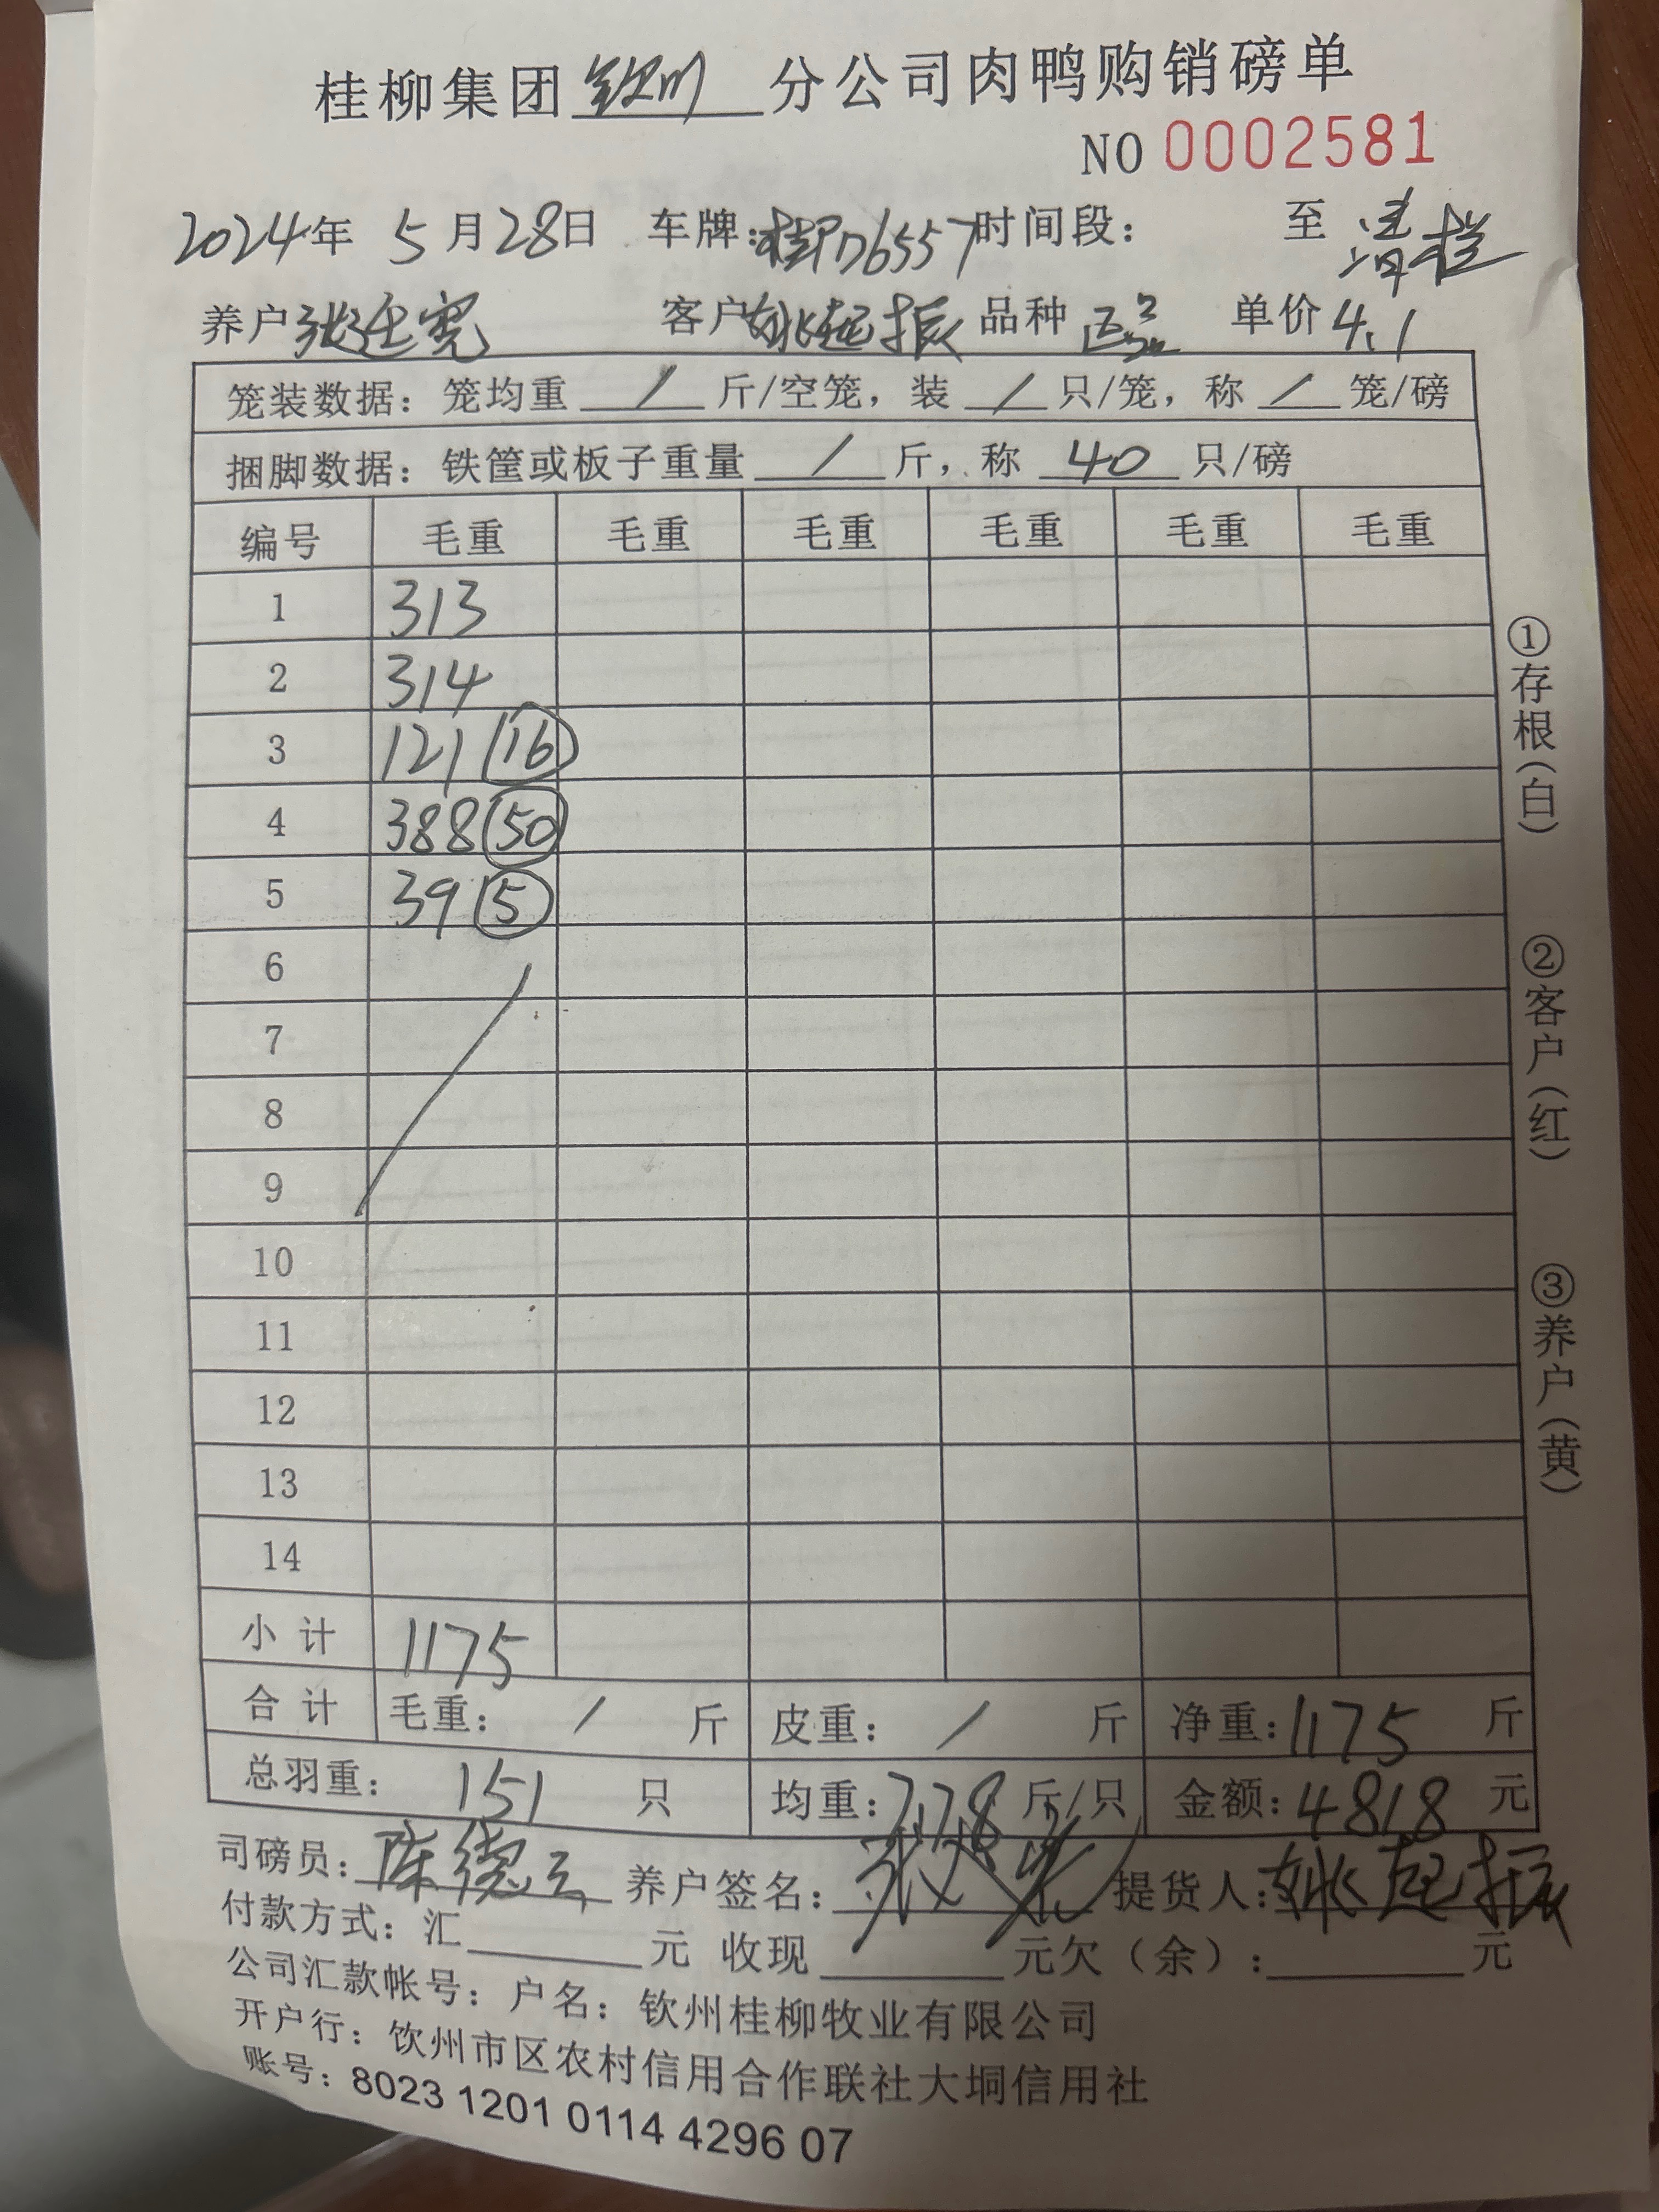 桂柳集团钦州分公司肉鸭购销磅单
NO 0002581
2024年 5月28日 车牌:桂PD6557 时间段: 至 清栏
养户张廷宪 客户姚起振 品种 正品 单价4.1
笼装数据: 笼均重 / 斤/空笼, 装 / 只/笼, 称 / 笼/磅
捆脚数据: 铁筐或板子重量 / 斤, 称 40 只/磅
编号 毛重 毛重 毛重 毛重 毛重 毛重
1 313
2 314
3 121 (16)
4 388 (50)
5 39 (5)
6
7
8
9
10
11
12
13
14
小计 1175
合计 毛重: / 斤 皮重: / 斤 净重: 1175 斤
总羽重: 151 只 均重: 7.78 斤/只 金额: 4818 元
司磅员: 陈德 养户签名: 提货人: 姚起振
付款方式: 汇 元 收现 元欠(余): 元
公司汇款帐号: 户名: 钦州桂柳牧业有限公司
开户行: 钦州市区农村信用合作联社大垌信用社
账号: 8023 1201 0114 4296 07
①存根(白)
②客户(红)
③养户(黄)